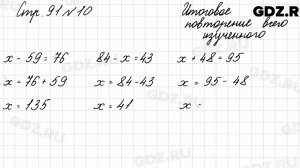 Стр. 91 № 10
Итоговое
повторение всего
изученного
GDZ.RU
x - 59 = 76
84 - x = 43
x + 48 = 95
x = 76 + 59
x = 84 - 43
x = 95 - 48
x = 135
x = 41
x =